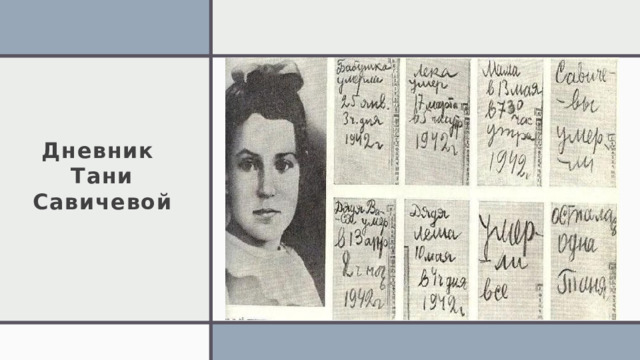 Дневник
Тани
Савичевой
Бабушка
умерла
25 янв.
3 ч. дня
1942 г
Лека
умер
17 марта
в 5 часутр
1942 г
Мама
в 13 мая
в 7 30
час
утра
1942 г
Савиче-
-вы
умер
-ли
Дядя Ва-
ся умер
в 13 апр
2 ч ноч
1942 г
Дядя
Леша
10 мая
в 4 ч дня
1942 г
умер-
-ли
все
осталась
одна
Таня